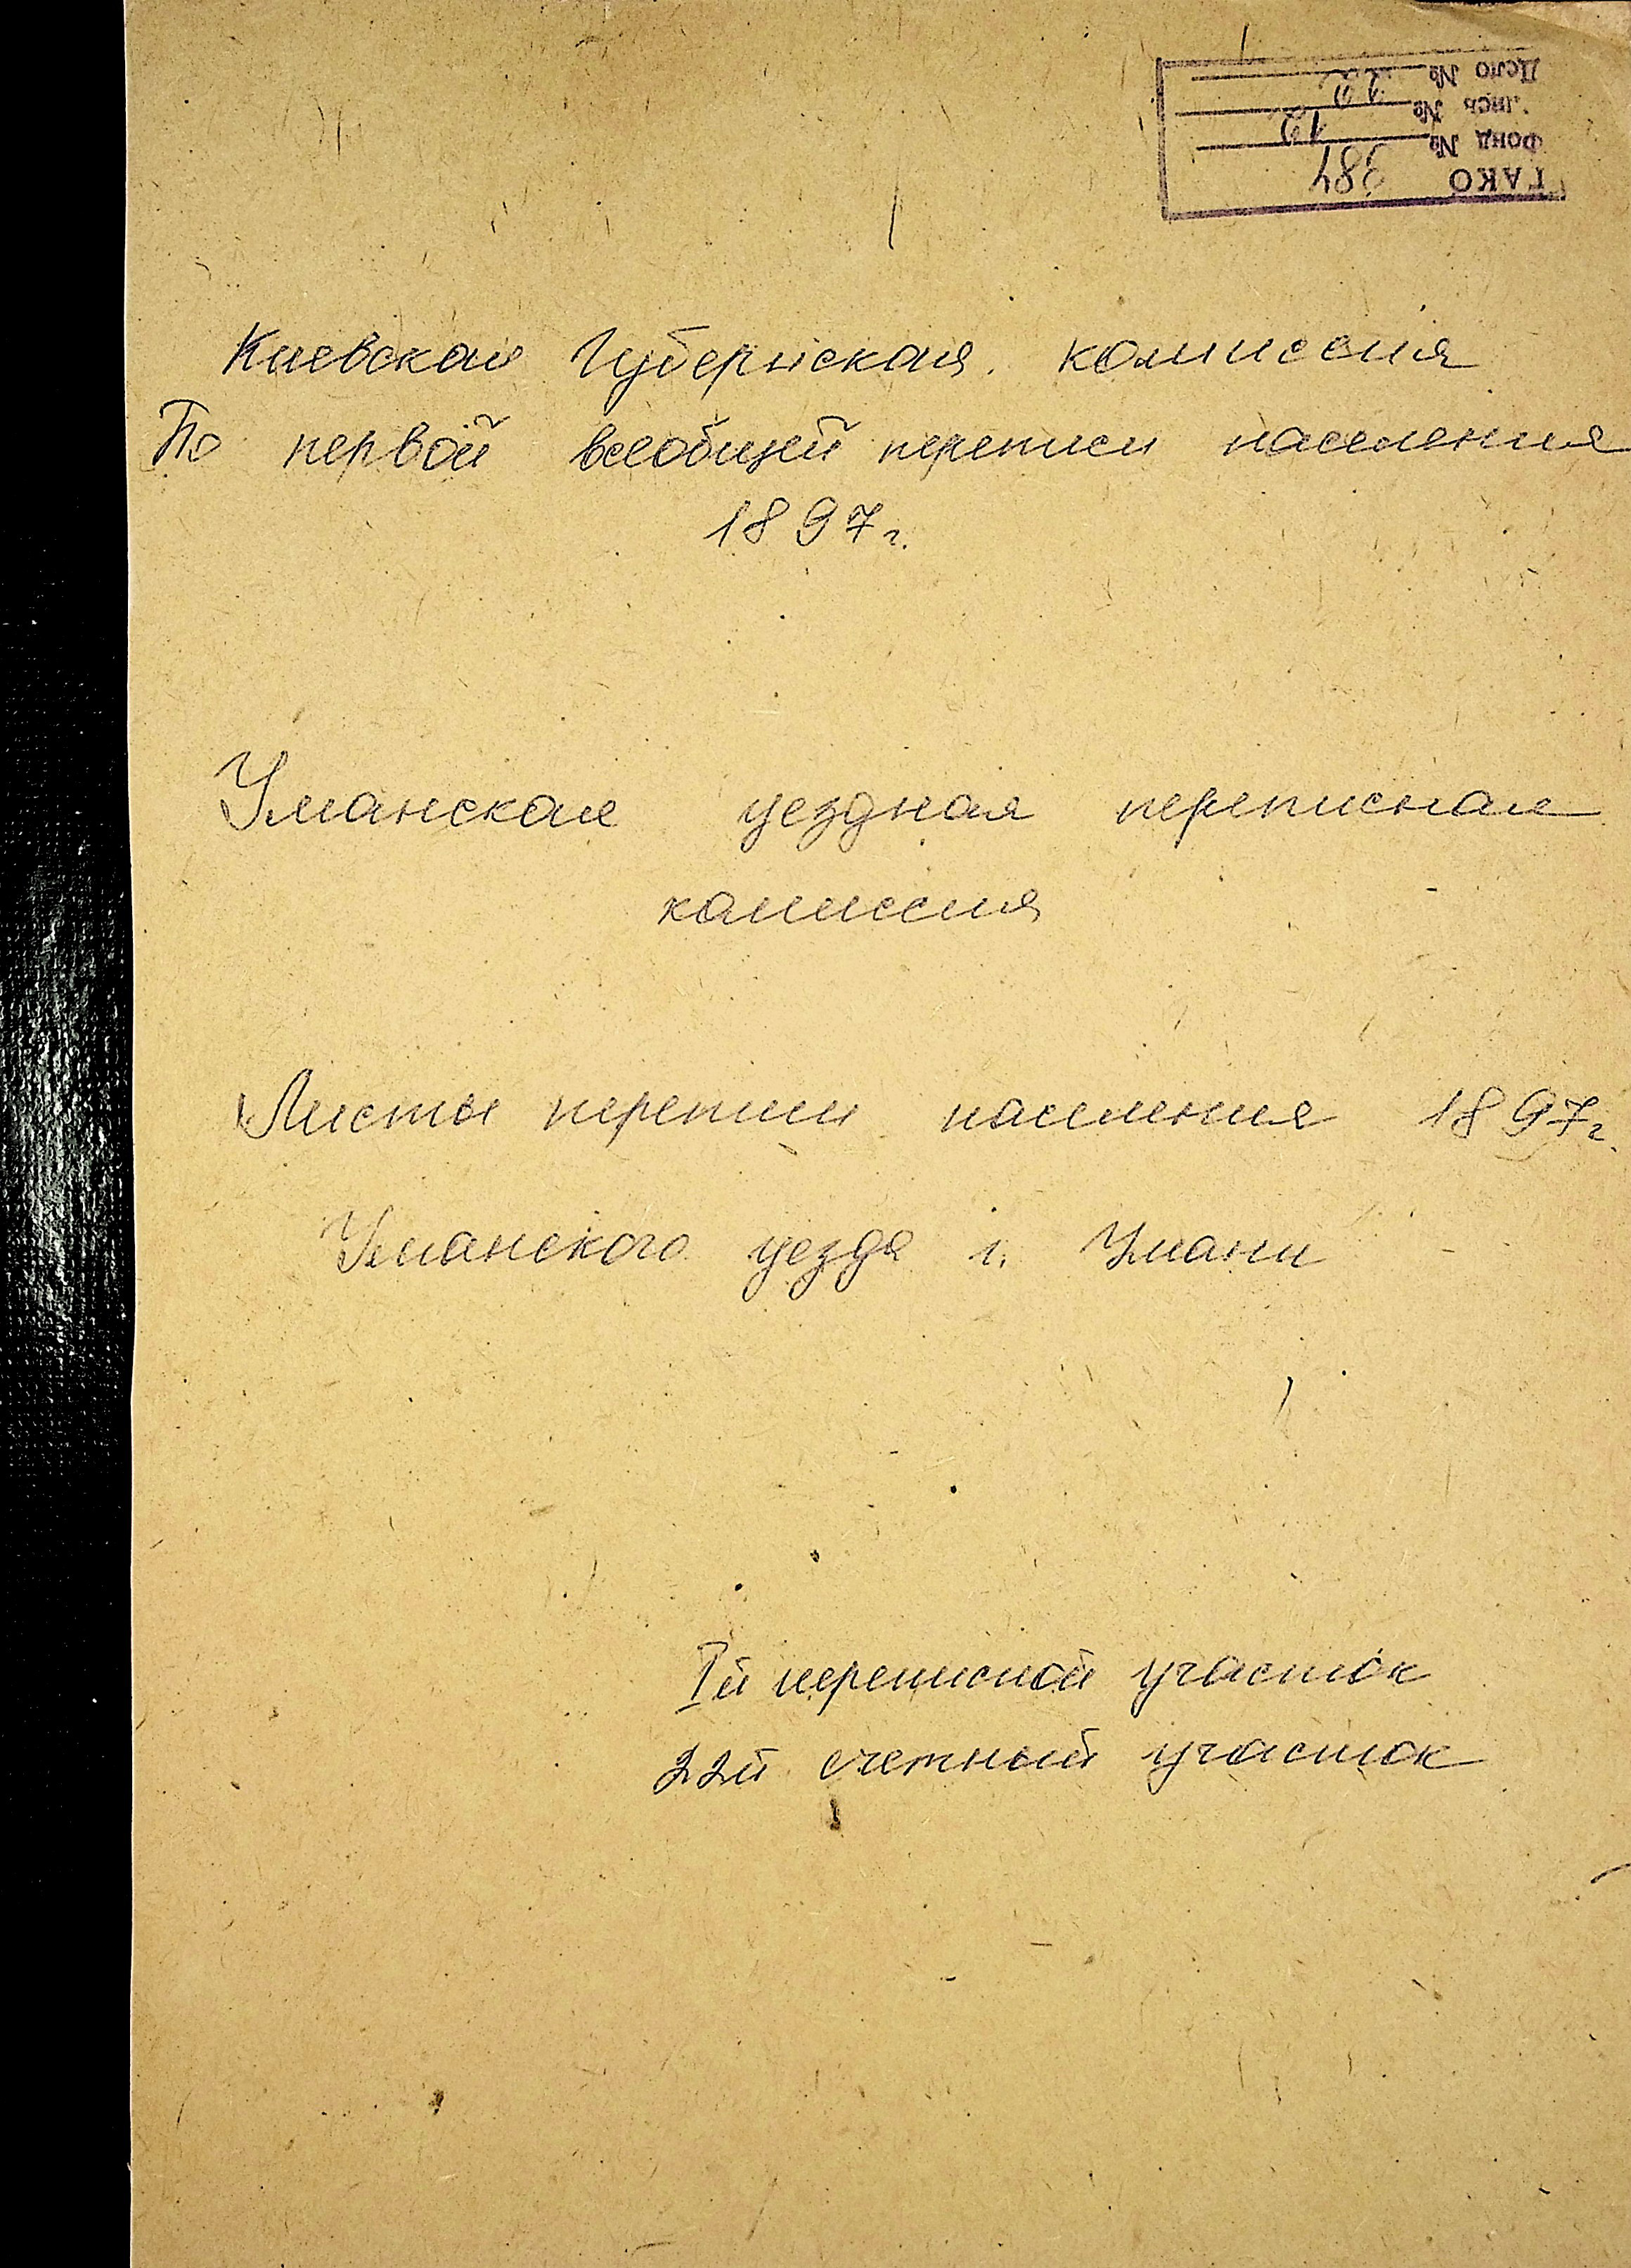 ГАКО 384
Фонд №
Дело №
Киевская Губернская комиссия
По первой всеобщей переписи населения
1897г.
Уманская уездная переписная
комиссия
Листы переписи населения 1897г.
Уманского уезда г. Умани
Iй переписной участок
22й счетный участок